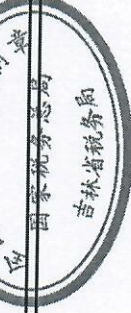 章
国家税务总局
吉林省税务局